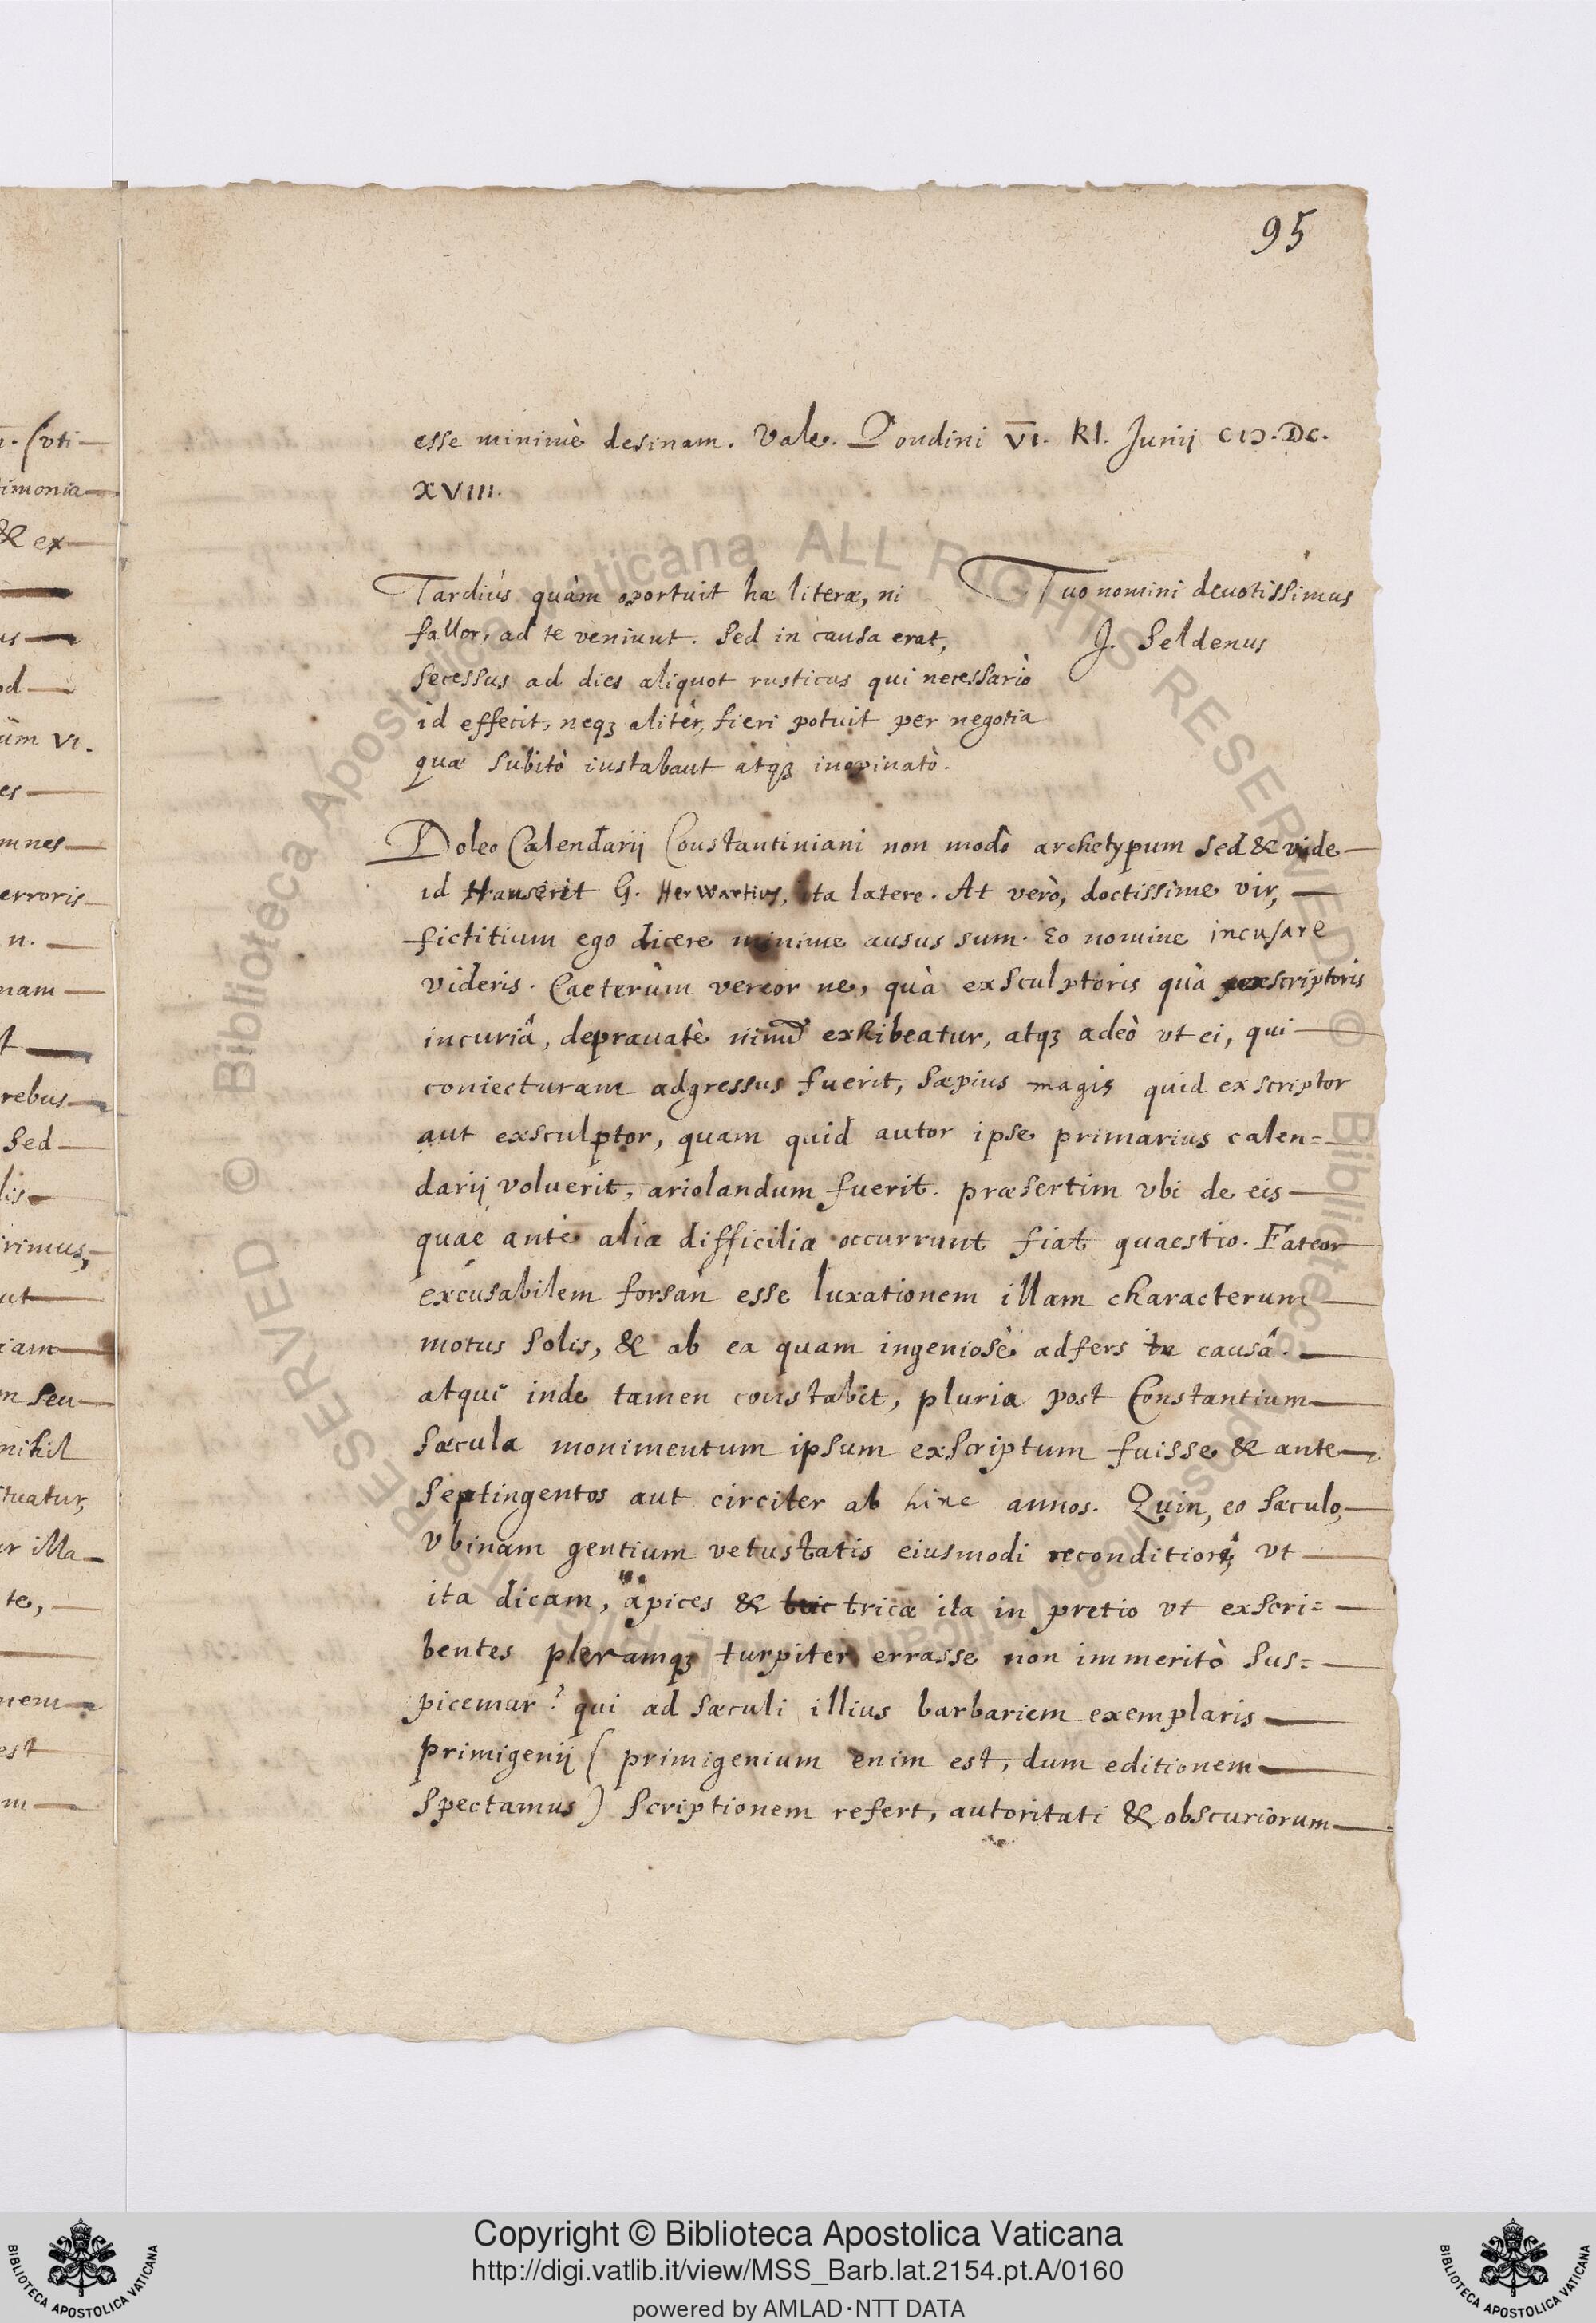 95
esse minimè desinam. Vale. Londini VI. Kl. Junij CIƆ.DC.
XVIII.
Tardiùs quàm oportuit hæ literæ, ni
fallor, ad te veniunt. Sed in causa erat,
secessus ad dies aliquot rusticus qui necessariò
id effecit, neqꝫ alitèr, fieri potuit per negotia
quæ subitò instabant atqꝫ inopinatò.
Tuo nomini deuotissimus
J. Seldenus
Doleo Calendarij Constantiniani non modò archetypum sed & vnde
id hauserit G. Herwartius, ita latere. At verò, doctissime vir,
fictitium ego dicere minime ausus sum. Eo nomine incusare
videris. Caeterùm vereor ne, quà exsculptoris quà exscriptoris
incuriâ, deprauatè nimis exhibeatur, atqꝫ adeò vt ei, qui
coniecturam adgressus fuerit, sæpius magis quid exscriptor
aut exsculptor, quam quid autor ipse primarius calen=
darij voluerit, ariolandum fuerit. præsertim vbi de eis
quae ante alia difficilia occurrunt fiat quaestio. Fateor
excusabilem forsan esse luxationem illam characterum
motus Solis, & ab ea quam ingeniosè adfers causâ.
atqui inde tamen constabit, pluria post Constantium
sæcula monimentum ipsum exscriptum fuisse & ante
septingentos aut circiter ab hinc annos. Quin, eo sæculo,
vbinam gentium vetustatis eiusmodi reconditioris, vt
ita dicam, apices & tricæ ita in pretio vt exscri=
bentes pleramqꝫ turpiter errasse non immeritò sus=
picemur? qui ad sæculi illius barbariem exemplaris
primigenij ( primigenium enim est, dum editionem
spectamus) scriptionem refert, autoritati & obscuriorum
Copyright © Biblioteca Apostolica Vaticana
http://digi.vatlib.it/view/MSS_Barb.lat.2154.pt.A/0160
powered by AMLAD·NTT DATA